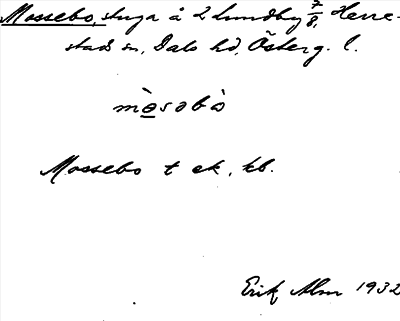 Mossebo, stuga å Lundby 7/8, Herre-
stads sn, Dals hd, Österg. l.
mòsabò
Mossebo t ek. kb.
Erik Alm 1932